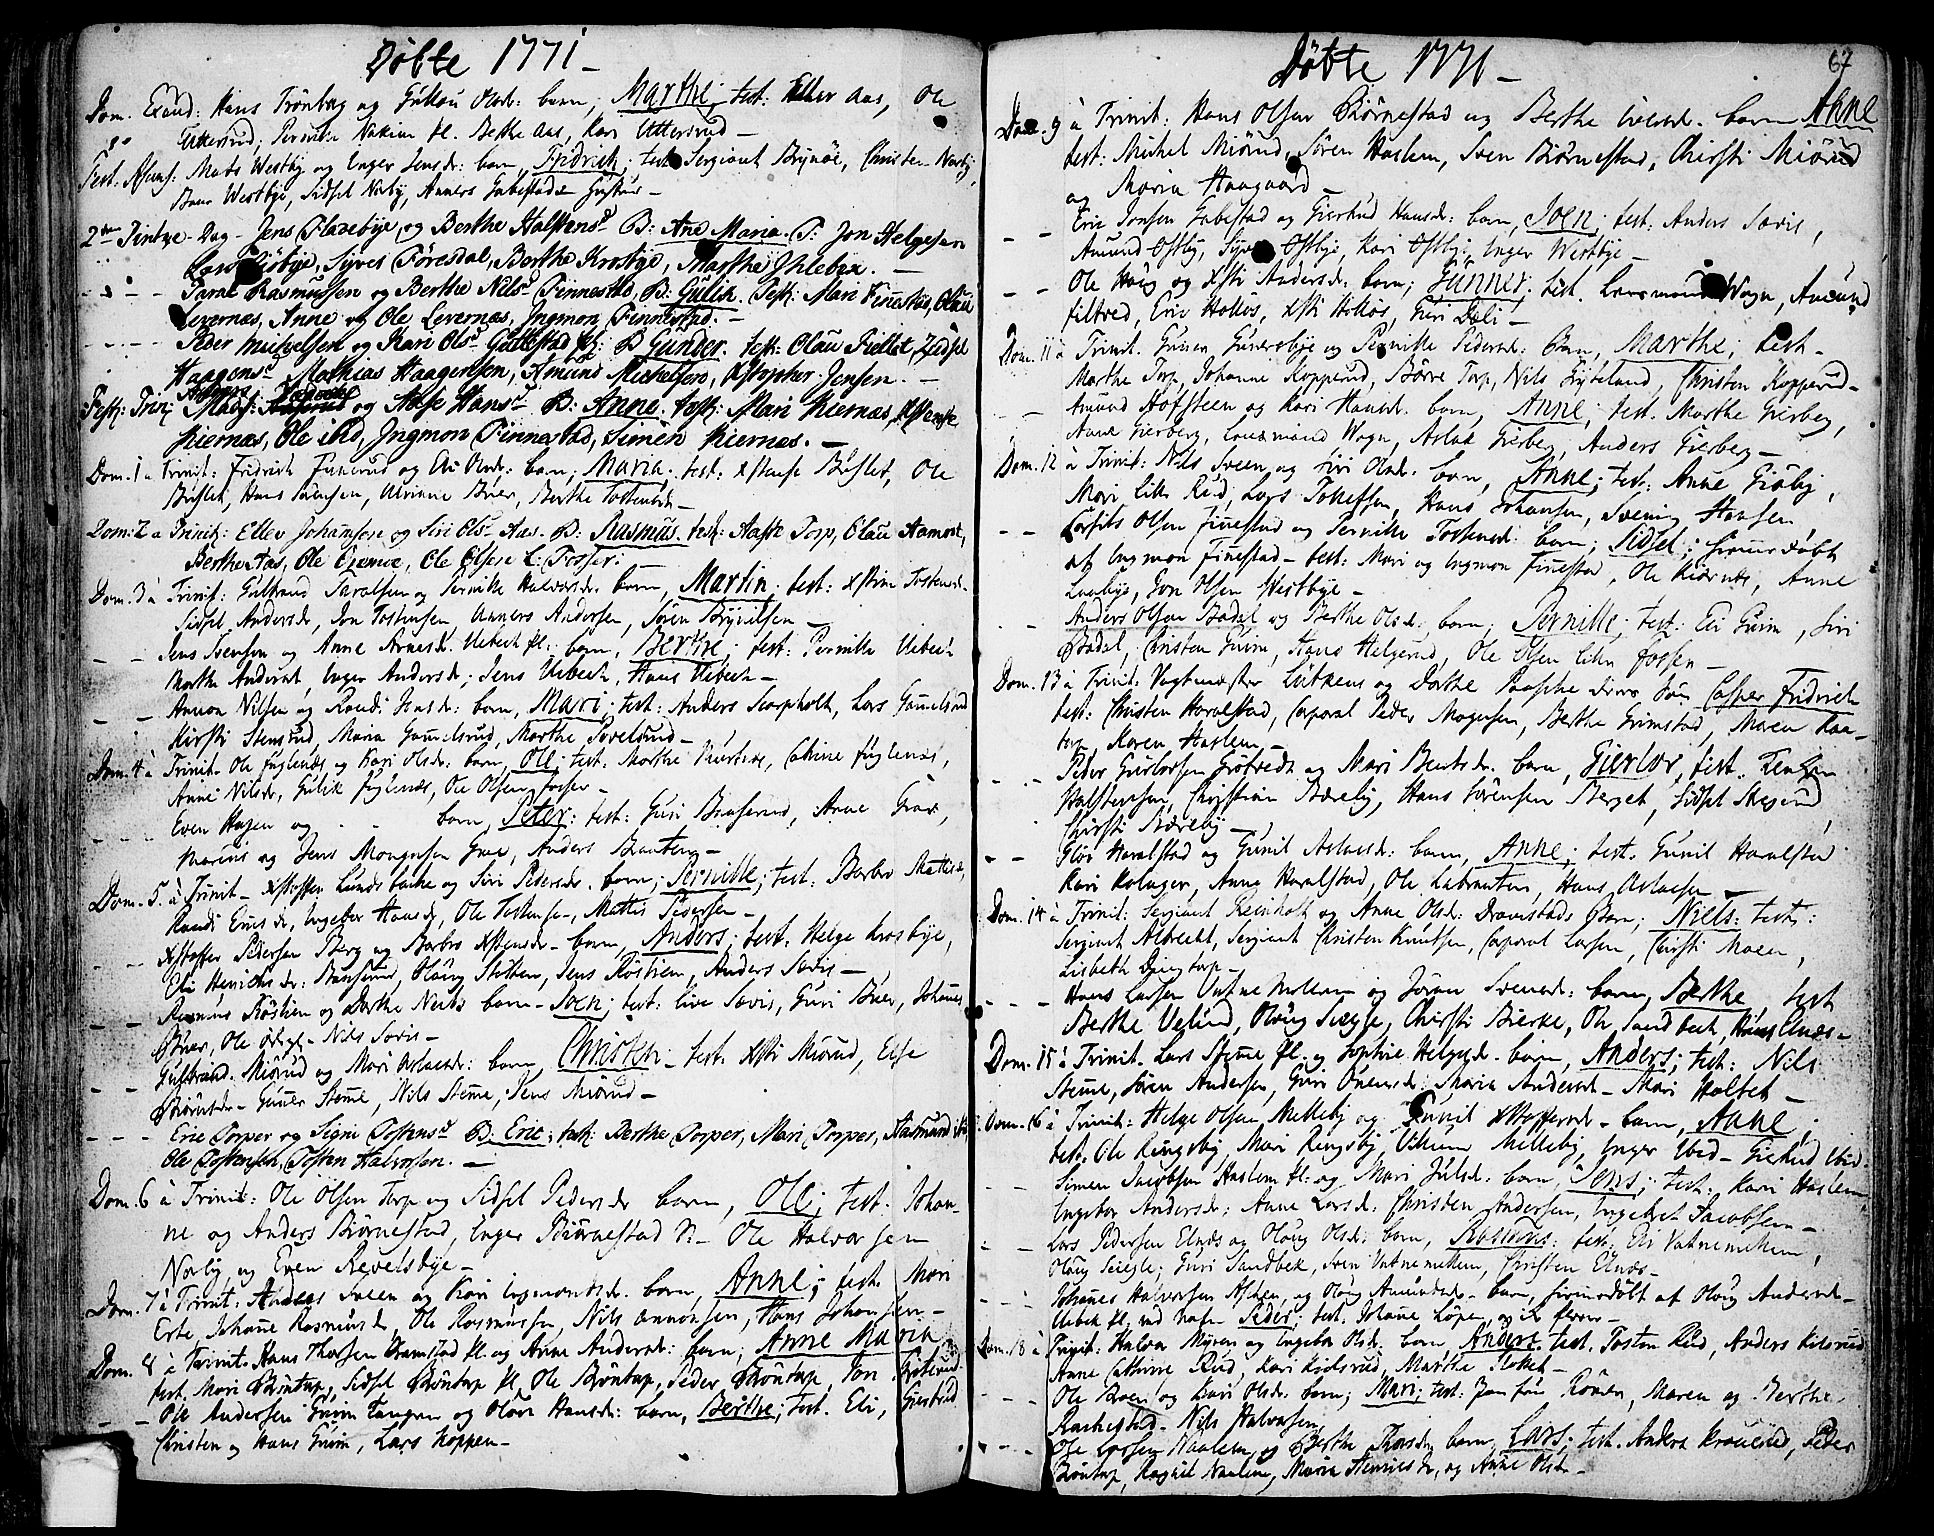 Døbte 1771 –
Dom. Exaud: Hans Trönberg og Gullau Olsd: barn, Marthe; test: Eller Aas, Ole
Uttersrud, Pernille Nakim pl. Berthe Aas, Kari Uttersrud –
Fest. Ascens: Mads Westby og Inger Jensd: barn, Fridrich; test: Sergiant Brynöe, Christen Narby,
Westbye, Sidsel Narby, Anners Gabestads Hustru –
2den Pintze-Dag – Jens Flaxebÿe og Berthe Halstens B: Ane Maria. T: Jon Helgesen
Lars Kiösbye, Syver Föresdal, Berthe Krosbye, Marthe Ihlebye. –
– – – Taral Rasmussen og Berthe Nils Finnestad, B: Gulik. Test: Mari Finnestad, Olau
Levernæs, Anne og Ole Levernæs, Ingmon Finnestad. –
– – – Peder Michelsen og Kari Ols Gullestad pl: B Gunder. test: Olau Fiellet, Zidsel
Haagens, Mathias Haagensen, Amund Michelsen, Christopher Jensen. –
Fest: Trin: Mads og Aase Hans B: Anne. test: Mari Kiernæs,
Kiernæs, Ole ibid, Ingmon Finnestad, Simen Kiernæs. –
Dom. 1 a Trinit: Fridrich Funnerud og Ols: barn, Maria, test: Bislet, Ole
Bislet, Hans Sörensen, Brer, Berthe Tostensd –
Dom: 2 a Trinit: Ellev Johansen og Siri Ols Aas. B: Rasmus. test: Aase Torp, Olau Aamot,
Berthe Aas, Ole, Ole Olsen L: Fosser. –
Dom. 3 à Trinit: Gulbrand Taralsen og Pernille Halvorsd: barn, Martin; test: Tostensd.
Sidsel Andersd, Jon Tostensen, Anners Andersen, Sören Brynilsen –
– – Jens Svensen og Anne Arnesd. Uebech pl: barn, Berthe; test: Pernille Uebech
Marthe Andersd, Inger Andersd; Jens Uebech, Hans Uebech –
– – Annon Nilsen og Randi Jensd: barn, Mari; test: Anders Skorpholt, Lars Gamelsrud
Kirsti Stensrud, Maria Gamelsrud, Marthe –
Dom. 4 à Trinit. Ole Fuglenæs og Kari Olsd: barn, Ole; test: Marthe, Cathrine Fuglenæs,
Anne Nilsd, Gulik Fuglenæs, Ole Olsen Fosser –
– – – Even Hagen og barn, Peter: test: Guri, Anne Grav,
Marius og Jens Mongensen Grav, Anders Braaten –
Dom. 5. à Trinit – Xstoffer Lundsbacke og Siri Pedersd. barn; Pernille; test: Barbro Mattisd,
Randi Ericsd, Ingebor Hansd, Ole Tostensen, Mattis Pedersen –
– – Xstoffer Pedersen Berg og Barbro barn, Anders; test. Helge Krosbye,
Eli Henrichsd: Olaug, Jens Röstien, Anders Sævis –
– – Rasmus Röstien og Dorthe barn – Soen; test: Sævis, Guri Brer, Johannes
Brer, Ole – Nils Sævis –
– – Gulbrand Miörud og Mari Aslaksd: barn, Christen – test. Miörud, Else
Biörnsd – Gunner Steme, Nils Steme, Jens Miörud –
– – – Eric Torper og Signe Tostens B: Eric; test: Berthe Torper, Mari Torper, Rasmund
Ole Tostensen, Tosten Halvorsen. –
Dom. 6 à Trinit: Ole Olsen Torp og Sidsel Pedersd barn, Ole; test. Johan-
ne og Anders Biörnestad, Inger Biörnestad – Ole Halvorsen
Narby og Even Revelsbye –
Dom. 7 à Trinit: Anders Sveen og Kari Ingmonsd. barn, Anne; test. Mari
Erte, Johane Rasmusd, Ole Rasmussen, Nils Annonsen, Hans Johansen –
Dom. 8 à Trinit. Hans Thorsen Gramstad pl. og Anne Andersd: barn; Anne Maria
test. Mari Bröntorp, Sidsel Bröntorp pl, Ole Bröntorp, Peder Bröntorp, Jon
– – Ole Andersen Guim Tangen og Olou Hansd: barn, Berthe; test. Eli,
Christen og Hans Guim, Lars Koppen –
67
Döbte 1771 –
Dom. 9 à Trinit: Hans Olsen Biörnestad og Berthe Iversd. barn Anne
test: Michel Miörud, Sören Haslem, Sven Biörnestad, Chirsti Miörud
og Maria Haagaard –
– – Eric Jonsen Gabestad og Giertrud Hansd: barn, Soen; test: Anders Sævis,
Amund Ostby, Syver Ostbye, Kari Ostby, Inger Westbye –
– – Ole Haug og Xsti Andersd: barn; Gunner; test. Laersmand Wogn, Amund
Filtved, Eric Holtos, Xsti Holtos, Guri Dæli –
Dom. 11 à Trinit. Guner Gunersbye og Pernille Pedersd: Barn, Marthe; test –
Marthe Torp, Johanne Kopperud, Börre Torp, Nils, Christen Kopperud –
– – Amund Hofsteen og Kari Hansd. barn, Anne; test. Marthe Gierberg,
Anne Gierberg, Lensmand Wogn, Aslak Gierberg, Anders Gierberg –
Dom. 12 à Trinit: Nils Sveen og Siri Olsd. barn, Anne; test: Anne Giöby,
Mari Lille Rud, Lars Tollefsen, Hans Johansen, Svening Hansen,
– – Olsen Finestad og Pernille Tostensd: barn; Sidsel; hiemedöbt
af Ingmon Finestad – test: Mari og Ingmon Finestad, Ole Kiernæs, Anne
Laabye, Jon Olsen Westbye –
– – Anders Olsen Badal og Berthe Olsd: barn; Pernille; test: Eli Guim, Siri
Badal, Christen Guim, Hans Helgerud, Ole Olsen Lille Fossen –
Dom. 13 à Trinit: Vagtmester Lütkens og Dorthe Paaske deres Sön Casper Fridrich
test: Christen Haralstad, Corporal Peder Mogensen, Berthe Grimstad, Maren Raa-
torp, Karen Haslem –
– – Peder Gierlovsen Gröfvedt og Mari Bentsd. barn, Gierlov, test.
Halstensen, Christian Bærebÿ, Hans Sörensen Berget, Sidsel
Chirsti Bærebÿ –
– – Glöe Haralstad og Gunil Aslaksd: barn, Anne; test. Gunil Haralstad
Kari Kolager, Anne Haralstad, Ole Labraaten, Hans Aslaksen –
Dom. 14 à Trinit: Sergiant Reinholt og Anne Olsd: Dramstads Barn; Niels: test:
Sergiant Albrecht, Sergiant Christen Knutsen, Corporal Larsen, Chirsti Moen,
Lisbeth Dingtorp –
– – – Hans Larsen Vatnemellem og Jöran Svensd: barn, Berthe, test
Berthe Velund, Olaug Seigle, Chirsti Bierke, Ole Sandbech, Hans Elnæs –
Dom. 15 à Trinit. Lars Steme pl. og Sophie Helgesd. barn, Anders; test: Nils
Steme, Sören Andersen, Guri Onensd: Maria Andersd – Mari Holtet –
Dom. 16 à Trinit: Helge Olsen Melleby og Gunil Xstoffersd – barn, Anne;
test. Ole Ringsby, Mari Ringsby, Melleby, Inger ibid – Giertrud ibid.
– – Simen Jacobsen Haslem pl: og Mari Julsd. barn, Jens; test. Kari Haslem
Ingebor Andersd: Anne Larsd: Christen Andersen, Ingebret Jacobsen –
– – Lars Pedersen Elnæs og Olaug Olsd: barn, Rasmus: test: Eli Vatnemellem,
Olaug Seigle, Guri Sandbek, Sven Vatnemellem, Christen Elnæs –
– – Johanes Halvorsen og Olaug Amundsd – barn, hiemedöbt af Olaug Andersd –
Uebek pl, ved nafn Peder; test. Johane Löpe og flere –
Dom. 18 à Trinit: Halvor Myren og Ingebor Olsd: barn, Anders. test. Tosten Rud, Anders Kilsrud
Anne Cathrine Rud, Kari Kilsrud, Marthe Slottet –
– – Ole Broen og Kari Olsd: barn; Mari; test: Jomfru Rönen, Maren og Berthe
Raakestad – Nils Halvorsen
– – Ole Larsen Naalem og Berthe Thorsd: barn, Lars; test. Anders Krouerud, Peder
Bröntorp, Ragnil Naalem, Maria, og Anne Olsd –